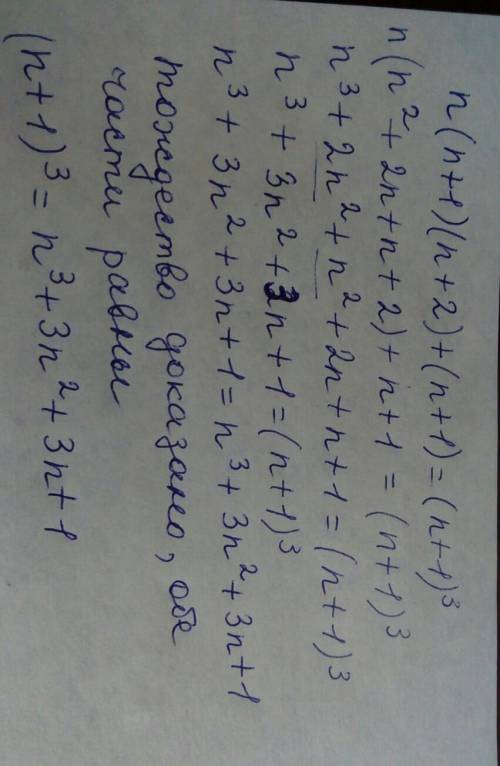 n(n+1)(n+2)+(n+1)=(n+1)³
n(n²+2n+n+2)+n+1=(n+1)³
n³+2n²+n²+2n+n+1=(n+1)³
n³+3n²+3n+1=(n+1)³
n³+3n²+3n+1=n³+3n²+3n+1
тождество доказано, обе
части равны
(n+1)³=n³+3n²+3n+1